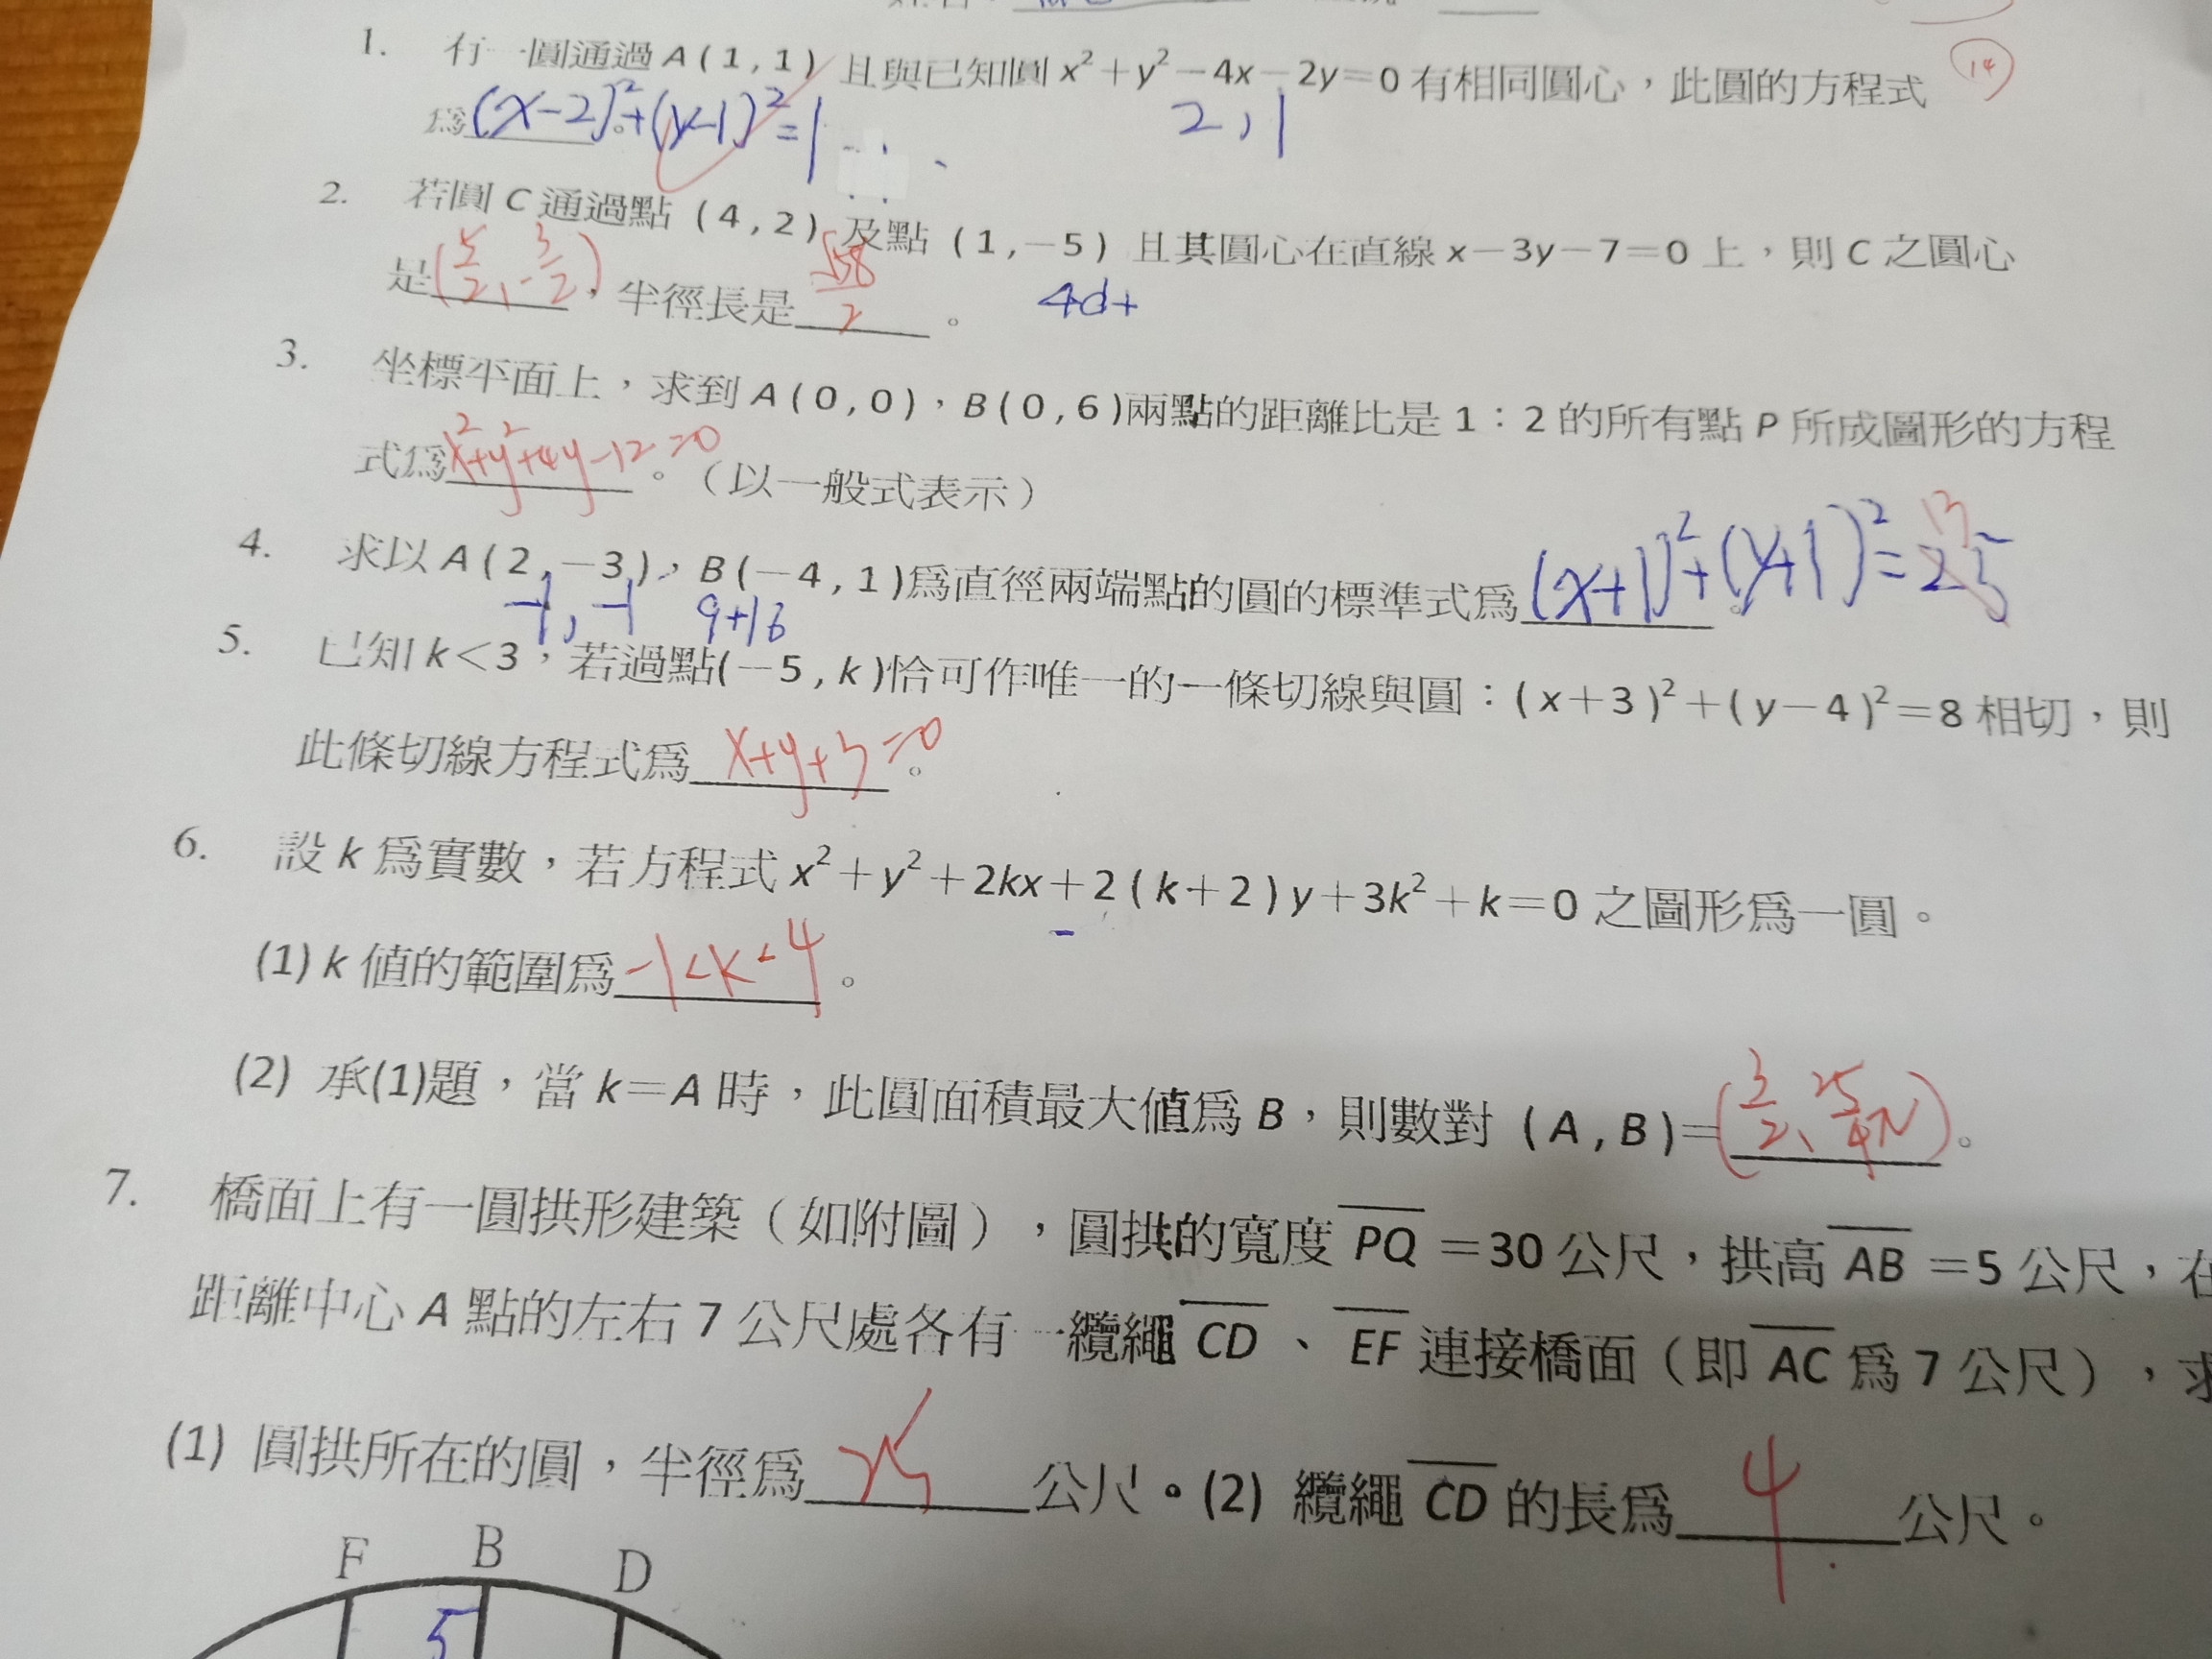 1. 有一圓通過 A(1,1) 且與已知圓 x²+y²-4x-2y=0 有相同圓心,此圓的方程式 14
為(x-2)²+(y-1)²=1。 2,1
2. 若圓 C 通過點 (4,2) 及點 (1,-5) 且其圓心在直線 x-3y-7=0 上,則 C 之圓心
是(5/2,-3/2),半徑長是√58/2。 4d+
3. 坐標平面上,求到 A(0,0),B(0,6)兩點的距離比是 1:2 的所有點 P 所成圖形的方程
式為x²+y²+4y-12=0。(以一般式表示)
4. 求以 A(2,-3),B(-4,1)為直徑兩端點的圓的標準式為(x+1)²+(y+1)²=25 13
-1,-1 9+16
5. 已知 k<3,若過點(-5,k)恰可作唯一的一條切線與圓:(x+3)²+(y-4)²=8 相切,則
此條切線方程式為x+y+3=0。
6. 設 k 為實數,若方程式 x²+y²+2kx+2(k+2)y+3k²+k=0 之圖形為一圓。
(1) k 值的範圍為-1<k<4。
(2) 承(1)題,當 k=A 時,此圓面積最大值為 B,則數對 (A,B)=(3/2,25/4π)。
7. 橋面上有一圓拱形建築(如附圖),圓拱的寬度 PQ=30 公尺,拱高 AB=5 公尺,在
距離中心 A 點的左右 7 公尺處各有一纜繩 CD、EF 連接橋面(即 AC 為 7 公尺),求
(1) 圓拱所在的圓,半徑為25公尺。(2) 纜繩 CD 的長為4公尺。
F B D
5